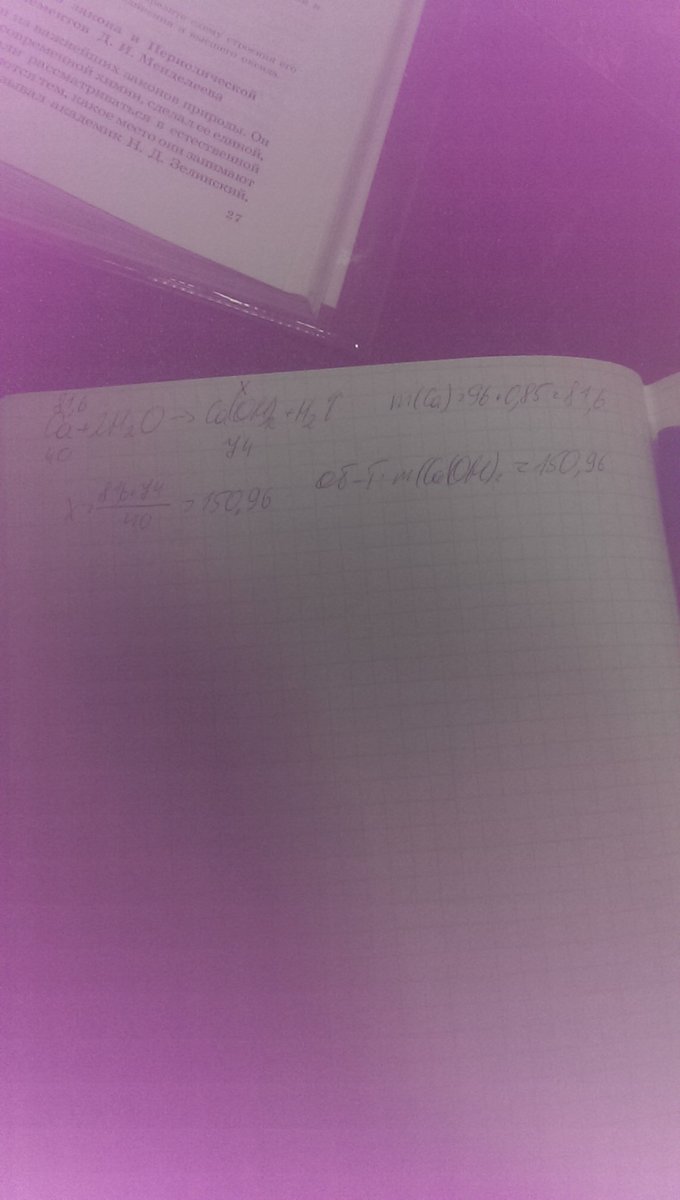 закона и Периодической
Д. И. Менделеева
на важнейших законов природы. Он
современной химии, сделал ее единой,
рассматриваться в естественной
тем, какое место они занимают
академик Н. Д. Зелинский,
27
81,6 x
Ca + 2H2O → Ca(OH)2 + H2↑ m(Ca) = 96 · 0,85 = 81,6
40 74
x = 81,6·74 / 40 = 150,96 m(Ca(OH)2 = 150,96